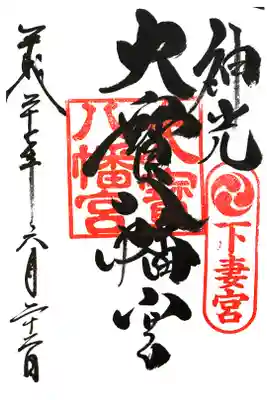 神光
下妻宮
大寳八幡宮
大寳
八幡宮
平成 年六月 日